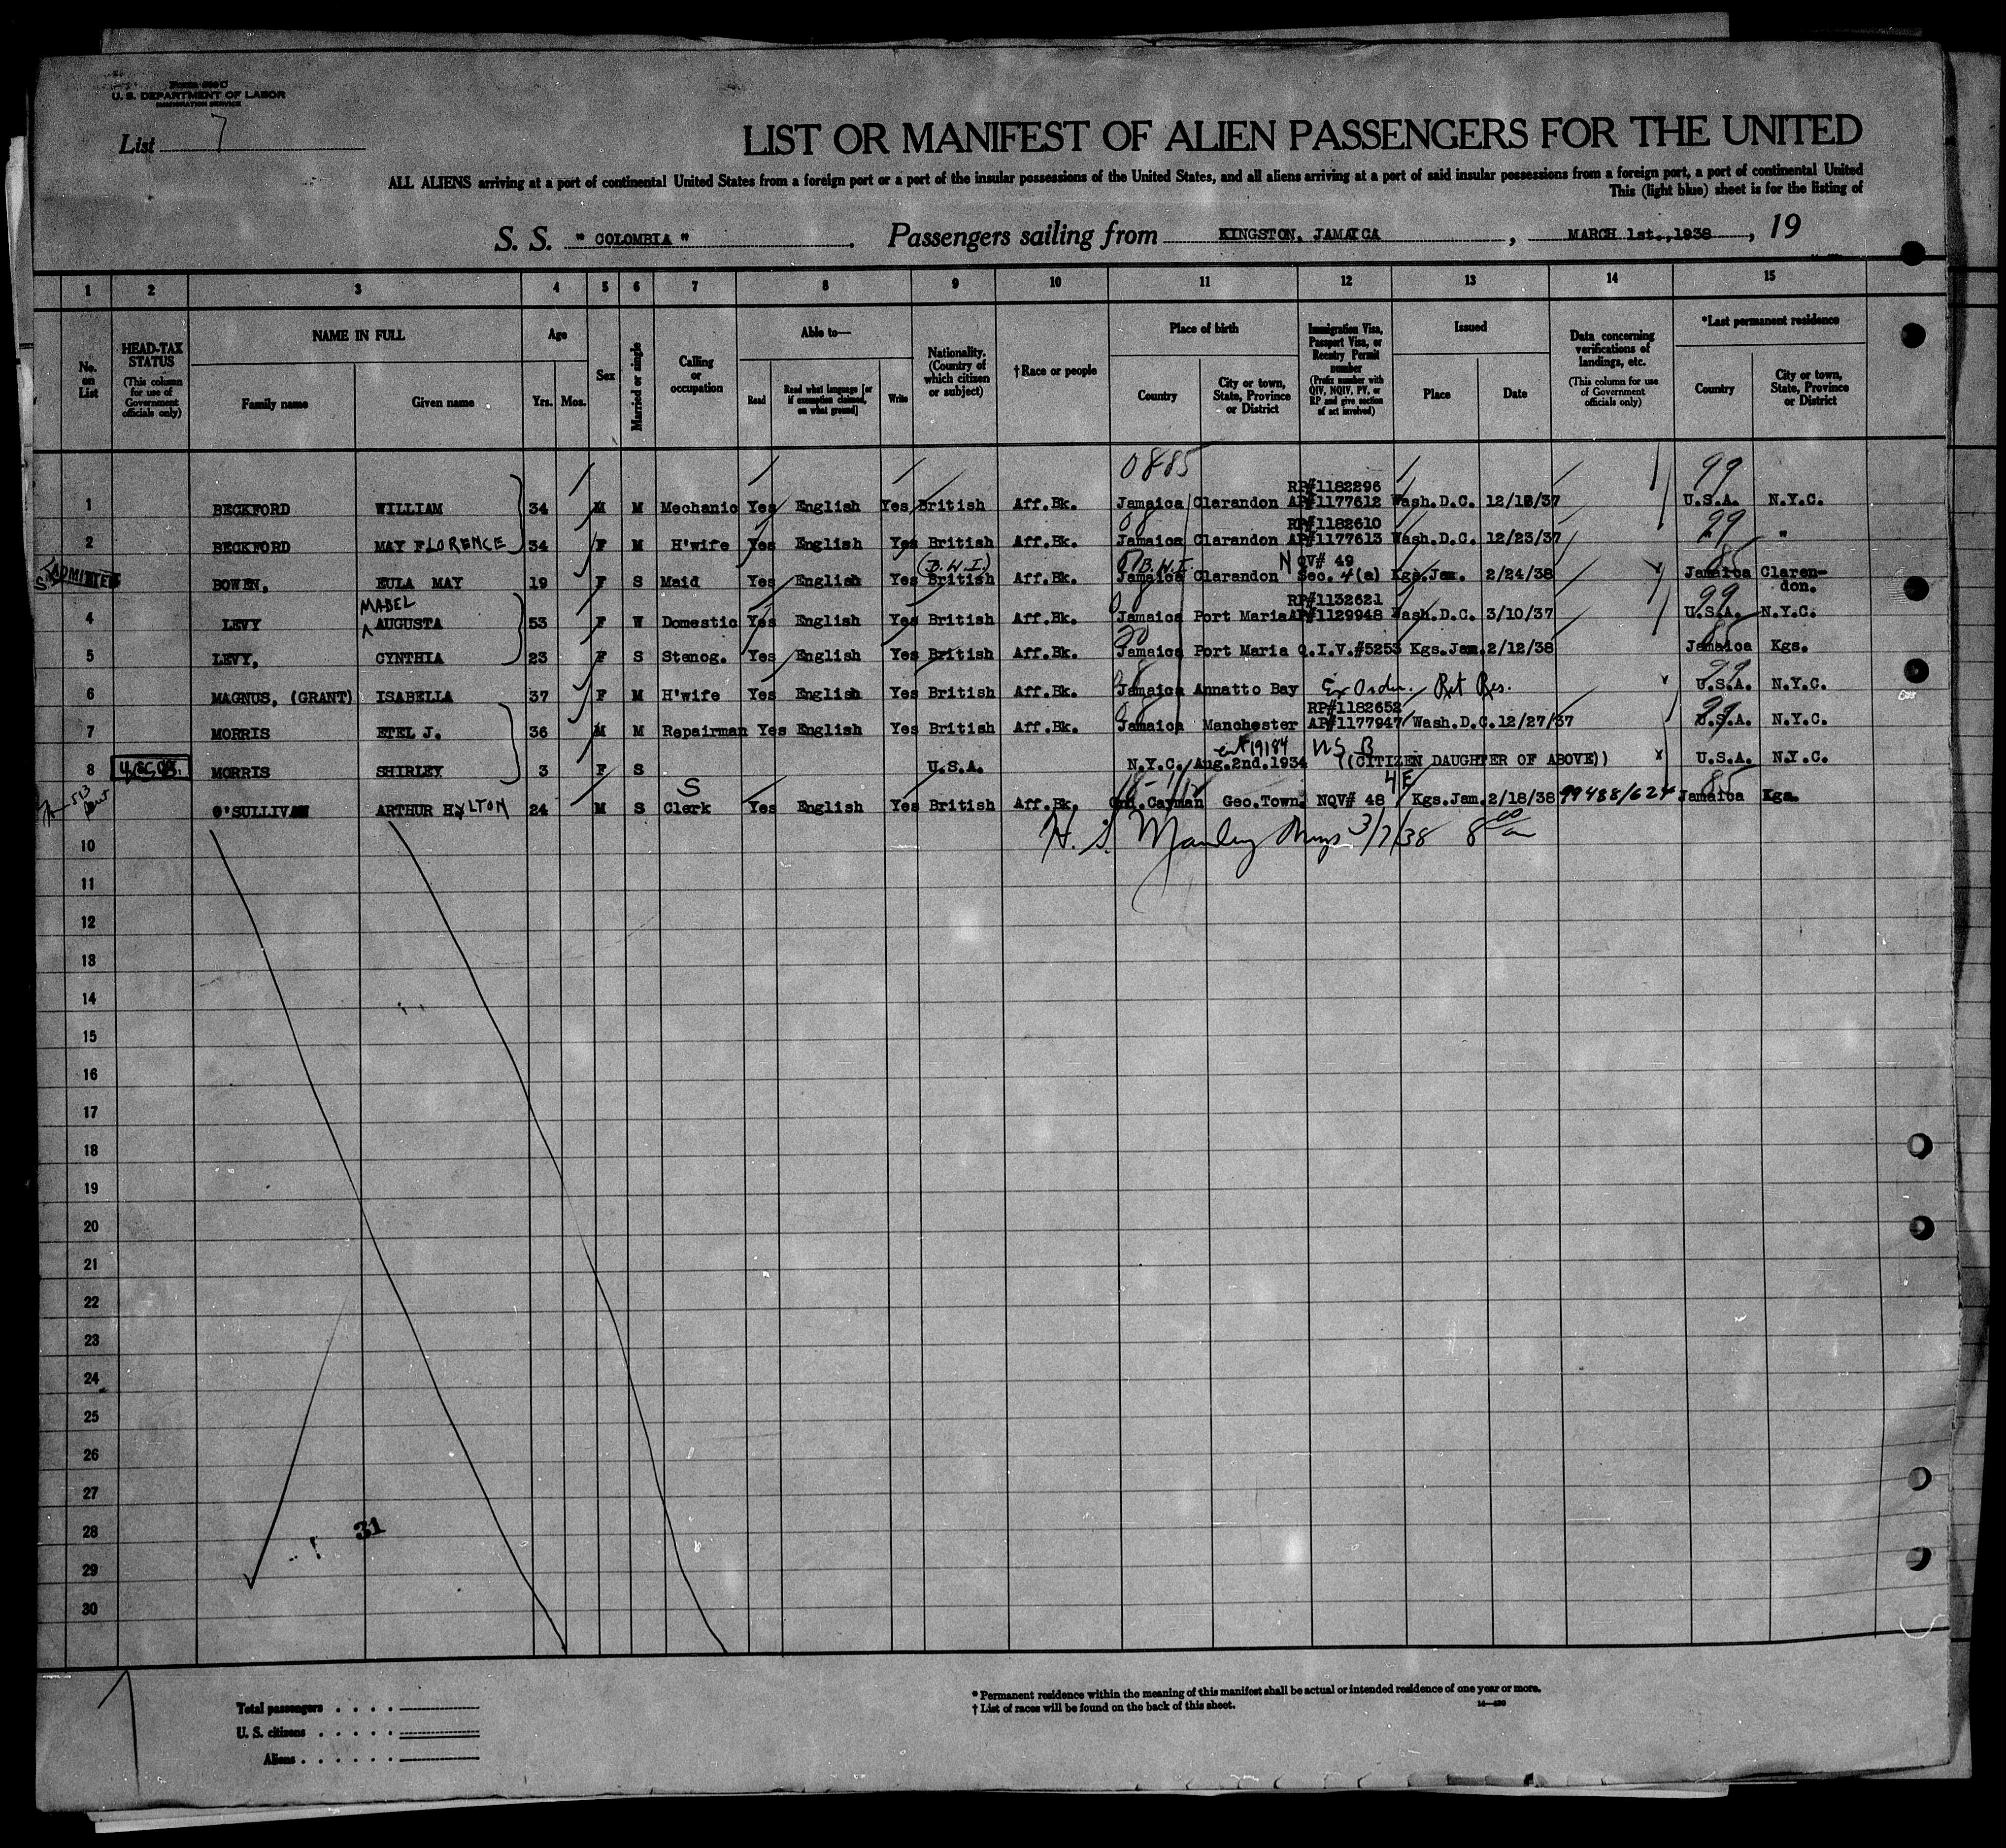 Form 500 C
U. S. DEPARTMENT OF LABOR
IMMIGRATION SERVICE
List 7
LIST OR MANIFEST OF ALIEN PASSENGERS FOR THE UNITED
ALL ALIENS arriving at a port of continental United States from a foreign port or a port of the insular possessions of the United States, and all aliens arriving at a port of said insular possessions from a foreign port, a port of continental United
This (light blue) sheet is for the listing of
S. S. "COLOMBIA". Passengers sailing from KINGSTON, JAMAICA, MARCH 1st.,1938, 19
1 2 3 4 5 6 7 8 9 10 11 12 13 14 15
No. on List
HEAD-TAX STATUS (This column for use of Government officials only)
NAME IN FULL
Family name Given name
Age
Yrs. Mos.
Sex
Married or single
Calling or occupation
Able to—
Read Read what language [or if exemption claimed, on what ground] Write
Nationality. (Country of which citizen or subject)
†Race or people
Place of birth
Country City or town, State, Province or District
Immigration Visa, Passport Visa, or Reentry Permit number (Prefix number with QIV, NQIV, PV, or RP and give section of act involved)
Issued
Place Date
Data concerning verifications of landings, etc. (This column for use of Government officials only)
*Last permanent residence
Country City or town, State, Province or District
0885 99
RP#1182296
1 BECKFORD WILLIAM 34 M M Mechanic Yes English Yes British Aff.Bk. Jamaica Clarandon AP#1177612 Wash.D.C. 12/18/37 U.S.A. N.Y.C.
RP#1182610 99
2 BECKFORD MAY FLORENCE 34 F M H'wife Yes English Yes British Aff.Bk. Jamaica Clarandon AP#1177613 Wash.D.C. 12/23/37 "
(B.W.I.) B.W.I. N QV# 49 85
ADMITTED BOWEN, EULA MAY 19 F S Maid Yes English Yes British Aff.Bk. Jamaica Clarandon Sec. 4(a) Kgs.Jam. 2/24/38 Jamaica Claren-
don.
MABEL RP#1132621 99
4 LEVY AUGUSTA 53 F W Domestic Yes English Yes British Aff.Bk. Jamaica Port Maria AP#1129948 Wash.D.C. 3/10/37 U.S.A. N.Y.C.
85
5 LEVY, CYNTHIA 23 F S Stenog. Yes English Yes British Aff.Bk. Jamaica Port Maria Q.I.V.#5253 Kgs.Jam. 2/12/38 Jamaica Kgs.
99
6 MAGNUS, (GRANT) ISABELLA 37 F M H'wife Yes English Yes British Aff.Bk. Jamaica Annatto Bay Ex Order. Ret Res. U.S.A. N.Y.C.
RP#1182652 99
7 MORRIS ETEL J. 36 M M Repairman Yes English Yes British Aff.Bk. Jamaica Manchester AP#1177947 Wash.D.C. 12/27/37 U.S.A. N.Y.C.
19184 US B
8 MORRIS SHIRLEY 3 F S U.S.A. N.Y.C. Aug.2nd.1934 ((CITIZEN DAUGHTER OF ABOVE)) U.S.A. N.Y.C.
S 4E 85
O'SULLIVAN ARTHUR HYLTON 24 M S Clerk Yes English Yes British Aff.Bk. Gnd.Cayman Geo.Town. NQV# 48 Kgs.Jam. 2/18/38 99488/624 Jamaica Kgs.
10 H. S. Manley 3/7/38 8 00 am
11
12
13
14
15
16
17
18
19
20
21
22
23
24
25
26
27
28 31
29
30
Total passengers
U. S. citizens
Aliens
* Permanent residence within the meaning of this manifest shall be actual or intended residence of one year or more.
† List of races will be found on the back of this sheet.